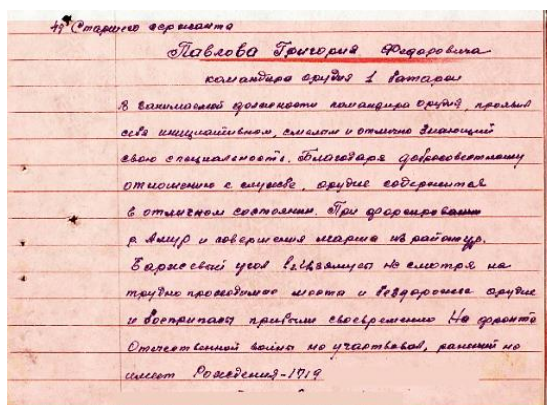 49 Старшего сержанта
Павлова Григория Федоровича
командира орудия 1 батареи
В занимаемой должности командира орудия, проявил
себя инициативном, смелым и отлично знающий
свою специальность. Благодаря добросовестному
отношению к службе, орудие содержится
в отличном состоянии. При форсировании
р. Амур и совершения марша из район
Баржевый угол не смотря на
трудно проходимые места и бездорожие орудие
и боеприпасы прибыли своевременно На фронте
Отечественной войны не участвовал, ранений не
имеет Рождения-1919